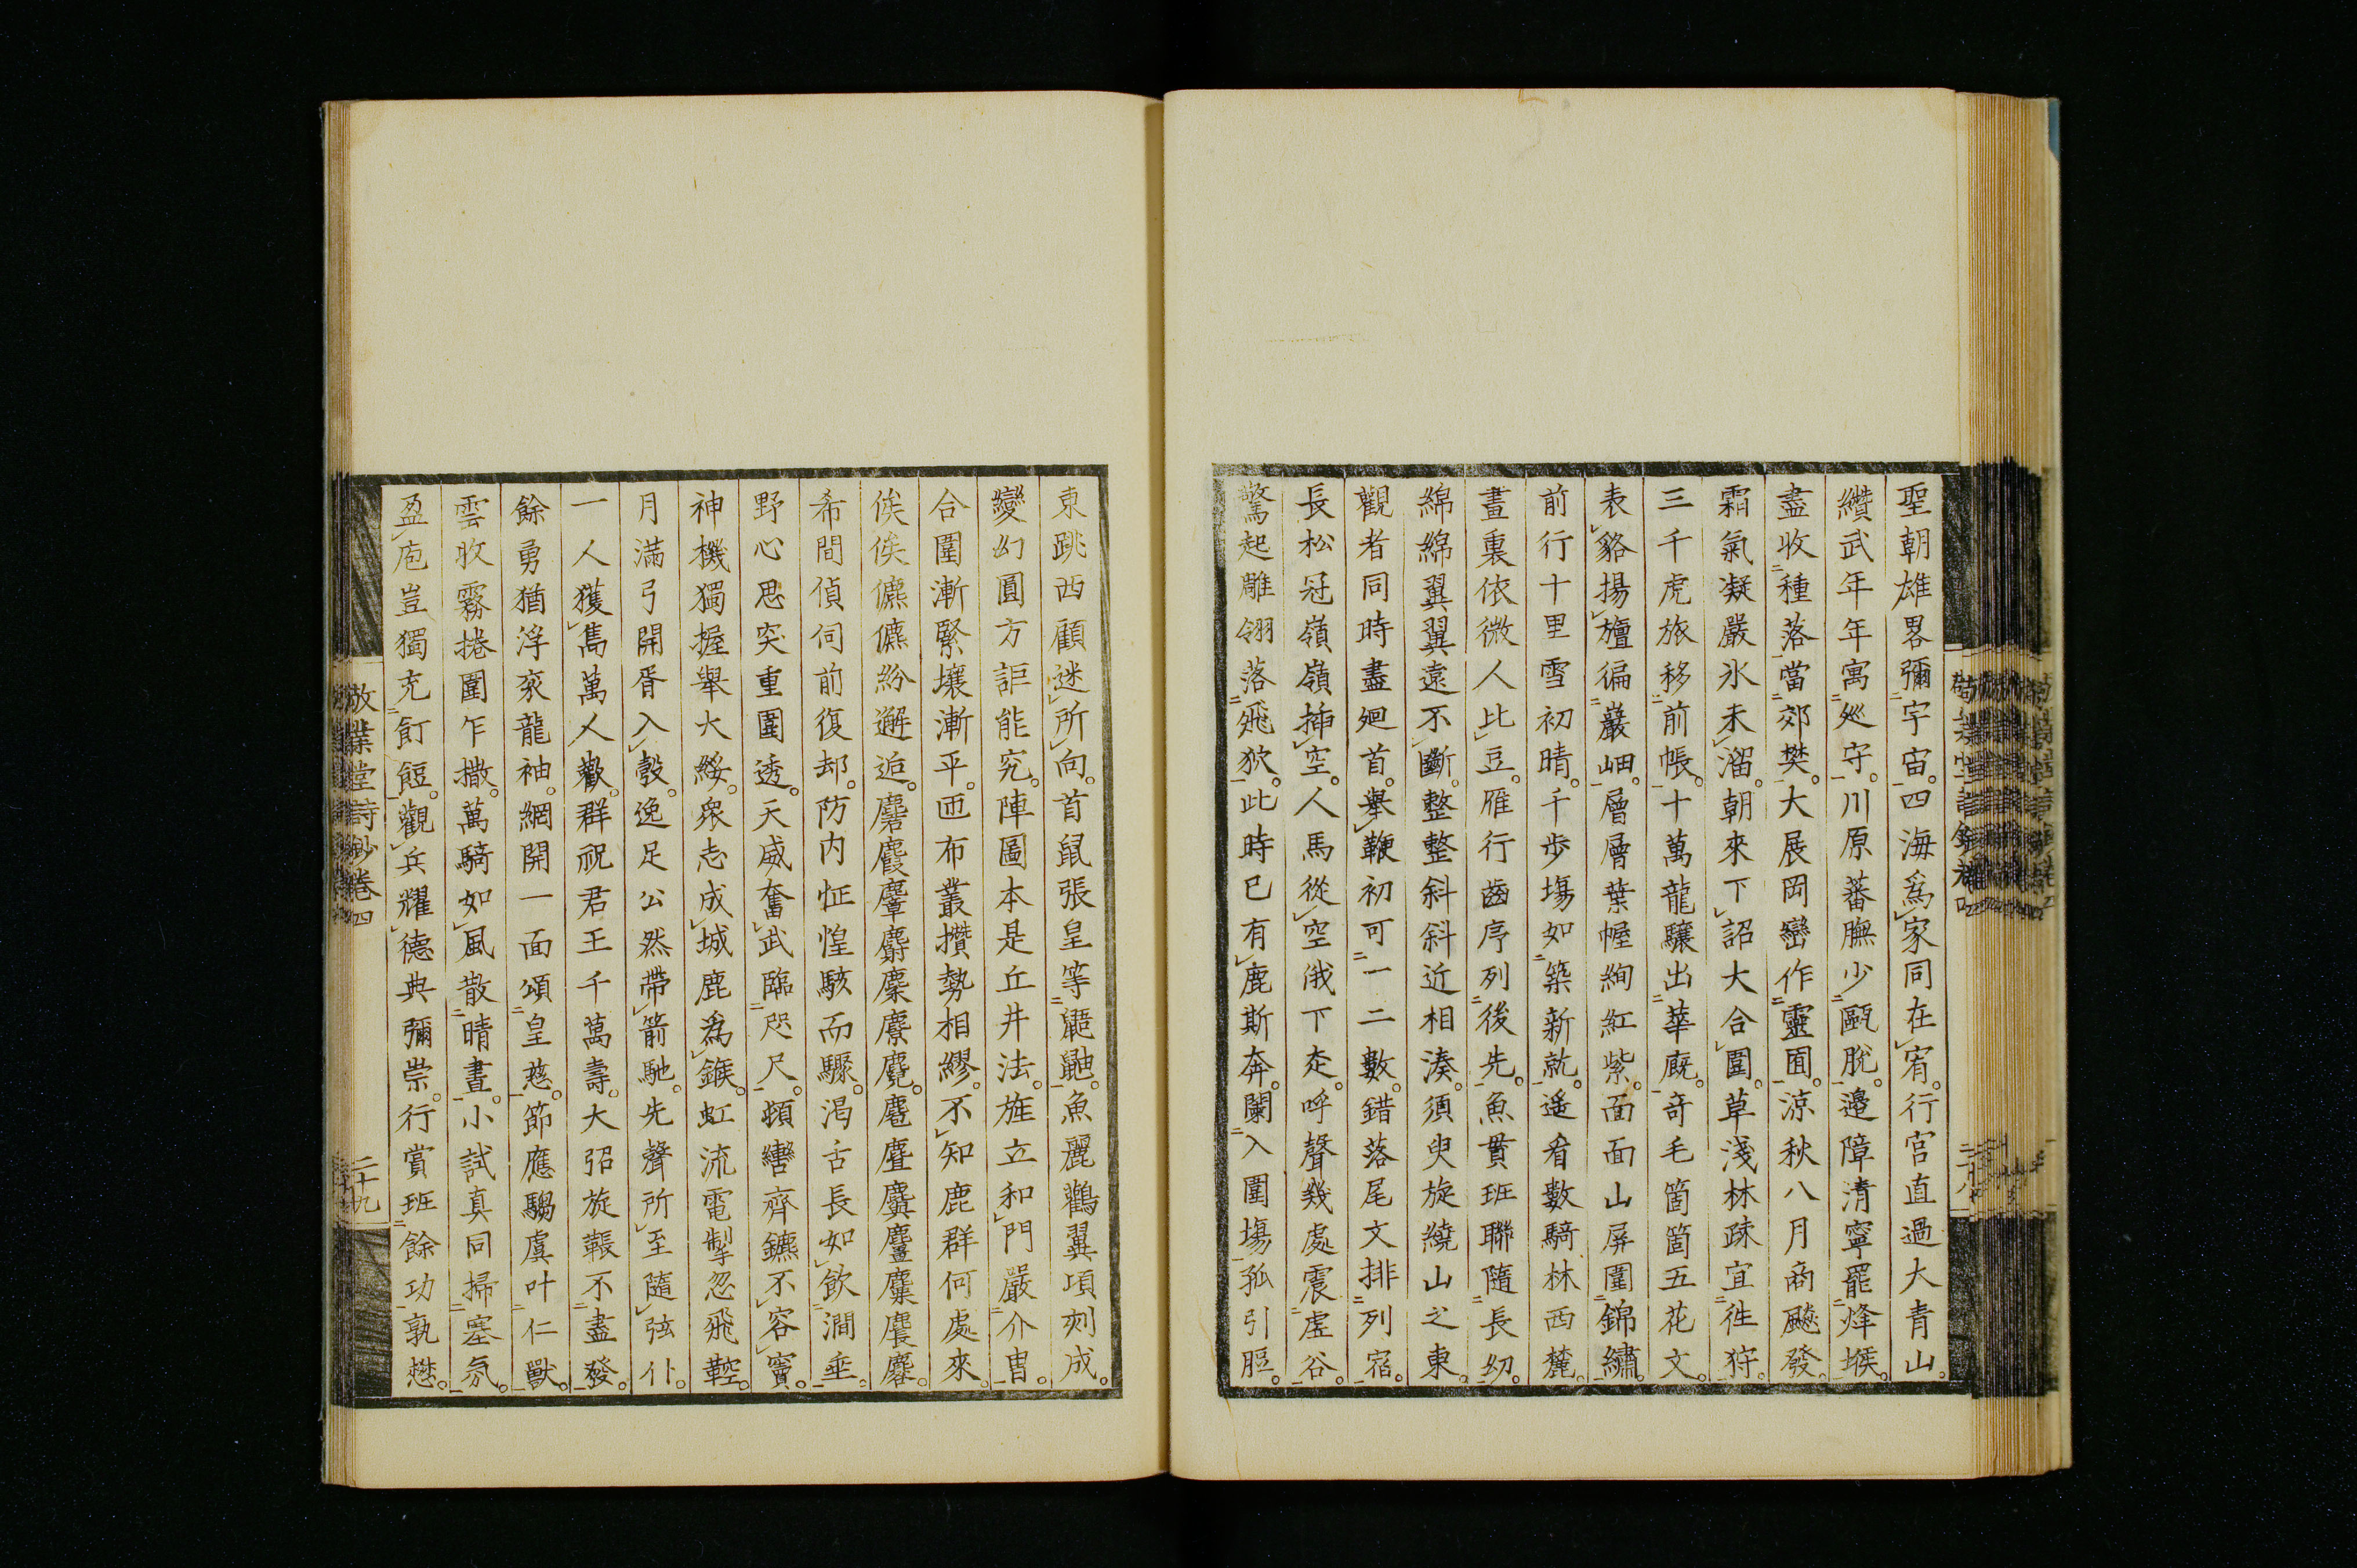 聖朝雄畧彌宇宙。四海爲家同在宥。行宮直過大青山。
纘武年年寓廵守。川原蕃膴少甌脫。邊障清寧罷烽堠。
盡收種落當郊樊。大展岡巒作靈囿。涼秋八月商飈發。
霜氣凝嚴氷未溜。朝來下詔大合圍。草淺林疎宜徃狩。
三千虎旅移前帳。十萬龍驤出華廐。竒毛箇箇五花文。
表貉揚旜徧巖岫。層層葉幄絢紅紫。面面山屏圍錦繡。
前行十里雪初晴。千步塲如築新就。遥看數騎林西麓。
畫裏依微人比豆。雁行齒序列後先。魚貫班聯隨長幼。
綿綿翼翼遠不斷。整整斜斜近相湊。須臾旋繞山之東。
觀者同時盡廻首。舉鞭初可一二數。錯落尾文排列宿。
長松冠嶺嶺插空。人馬從空俄下赱。呼聲幾處震虛谷。
驚起雕翎落飛狖。此時已有鹿斯奔。闌入圍塲孤引脰。
東跳西顧迷所向。首鼠張皇等鼯鼬。魚麗鸛翼項刻成。
變幻圓方詎能究。陣圖本是丘井法。旌立和門嚴介冑。
合圍漸緊壤漸平。匝布叢攢勢相繆。不知鹿群何處來。
俟俟儦儦紛邂逅。麏麚麞麝麇麖麑。麀麆麌麠麋麎麔。
希間偵伺前復却。防内怔惶駭而驟。渴舌長如飲澗垂。
野心思突重圍透。天威奮武臨咫尺。頓轡齊鑣不容竇。
神機獨握舉大綏。衆志成城鹿爲鍭。虹流電掣忽飛鞚。
月滿弓開胥入彀。逸足公然帶箭馳。先聲所至隨弦仆。
一人獲雋萬人歡。群祝君王千萬壽。大弨旋韔不盡發。
餘勇猶浮衮龍袖。網開一面頌皇慈。節應騶虞叶仁獸。
雲收霧捲圍乍撒。萬騎如風散晴晝。小試真同掃塞氛。
盈庖豈獨充飣餖。觀兵耀德典彌崇。行賞班餘功孰懋。
敬業堂詩鈔卷四
二十九